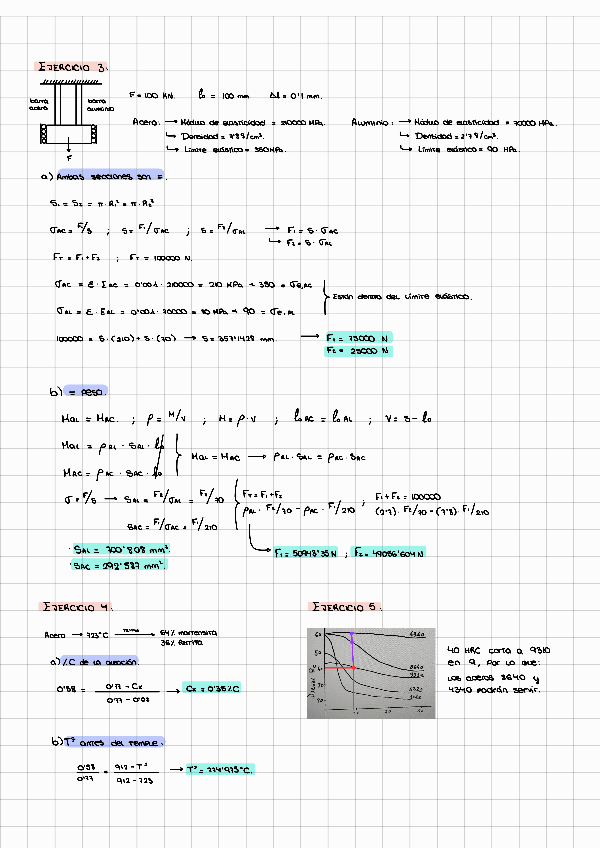 EJERCICIO 3.
F = 100 KN. l₀ = 100 mm Δl = 0'1 mm.
barra acero
barra aluminio
F
Acero: → Módulo de elasticidad = 210000 MPa.
↳ Densidad = 7'8 g/cm³.
↳ Límite elástico = 380 MPa.
Aluminio: → Módulo de elasticidad = 70000 MPa.
↳ Densidad = 2'7 g/cm³.
↳ Límite elástico = 90 MPa.
a) Ambas secciones son =.
S₁ = S₂ = π · R₁² = π · R₂²
σAC = F/S ; S = F₁/σAC ; S = F₂/σAL → F₁ = S · σAC
↳ F₂ = S · σAL
FT = F₁ + F₂ ; FT = 100000 N.
σAC = ε · EAC = 0'001 · 210000 = 210 MPa < 380 = σe,AC
σAL = ε · EAL = 0'001 · 70000 = 70 MPa < 90 = σe,AL
Están dentro del límite elástico.
100000 = S · (210) + S · (70) → S = 357'1428 mm. → F₁ = 75000 N
F₂ = 25000 N
b) = peso.
MAL = MAC. ; ρ = M/V ; M = ρ · V ; l₀ AC = l₀ AL ; V = S · l₀
MAL = ρAL · SAL · l₀
MAC = ρAC · SAC · l₀
MAL = MAC → ρAL · SAL = ρAC · SAC
σ = F/S → SAL = F₂/σAL = F₂/70
SAC = F₁/σAC = F₁/210
FT = F₁ + F₂
ρAL · F₂/70 = ρAC · F₁/210 ;
F₁ + F₂ = 100000
(2'7) · F₂/70 = (7'8) · F₁/210
SAL = 700'808 mm².
SAC = 292'587 mm².
F₁ = 50943'35 N ; F₂ = 49056'604 N
EJERCICIO 4.
Acero → 723°C → 64% martensita
36% ferrita
a) %C de la aleación.
0'58 = 0'77 - Cx / 0'77 - 0'02 → Cx = 0'35 %C
b) Tª antes del temple.
0'58/0'77 = 912 - Tª / 912 - 723 → Tª = 774'975°C.
EJERCICIO 5.
40 HRC corta a 9310
en 9, por lo que:
los aceros 8640 y
4340 podrán servir.